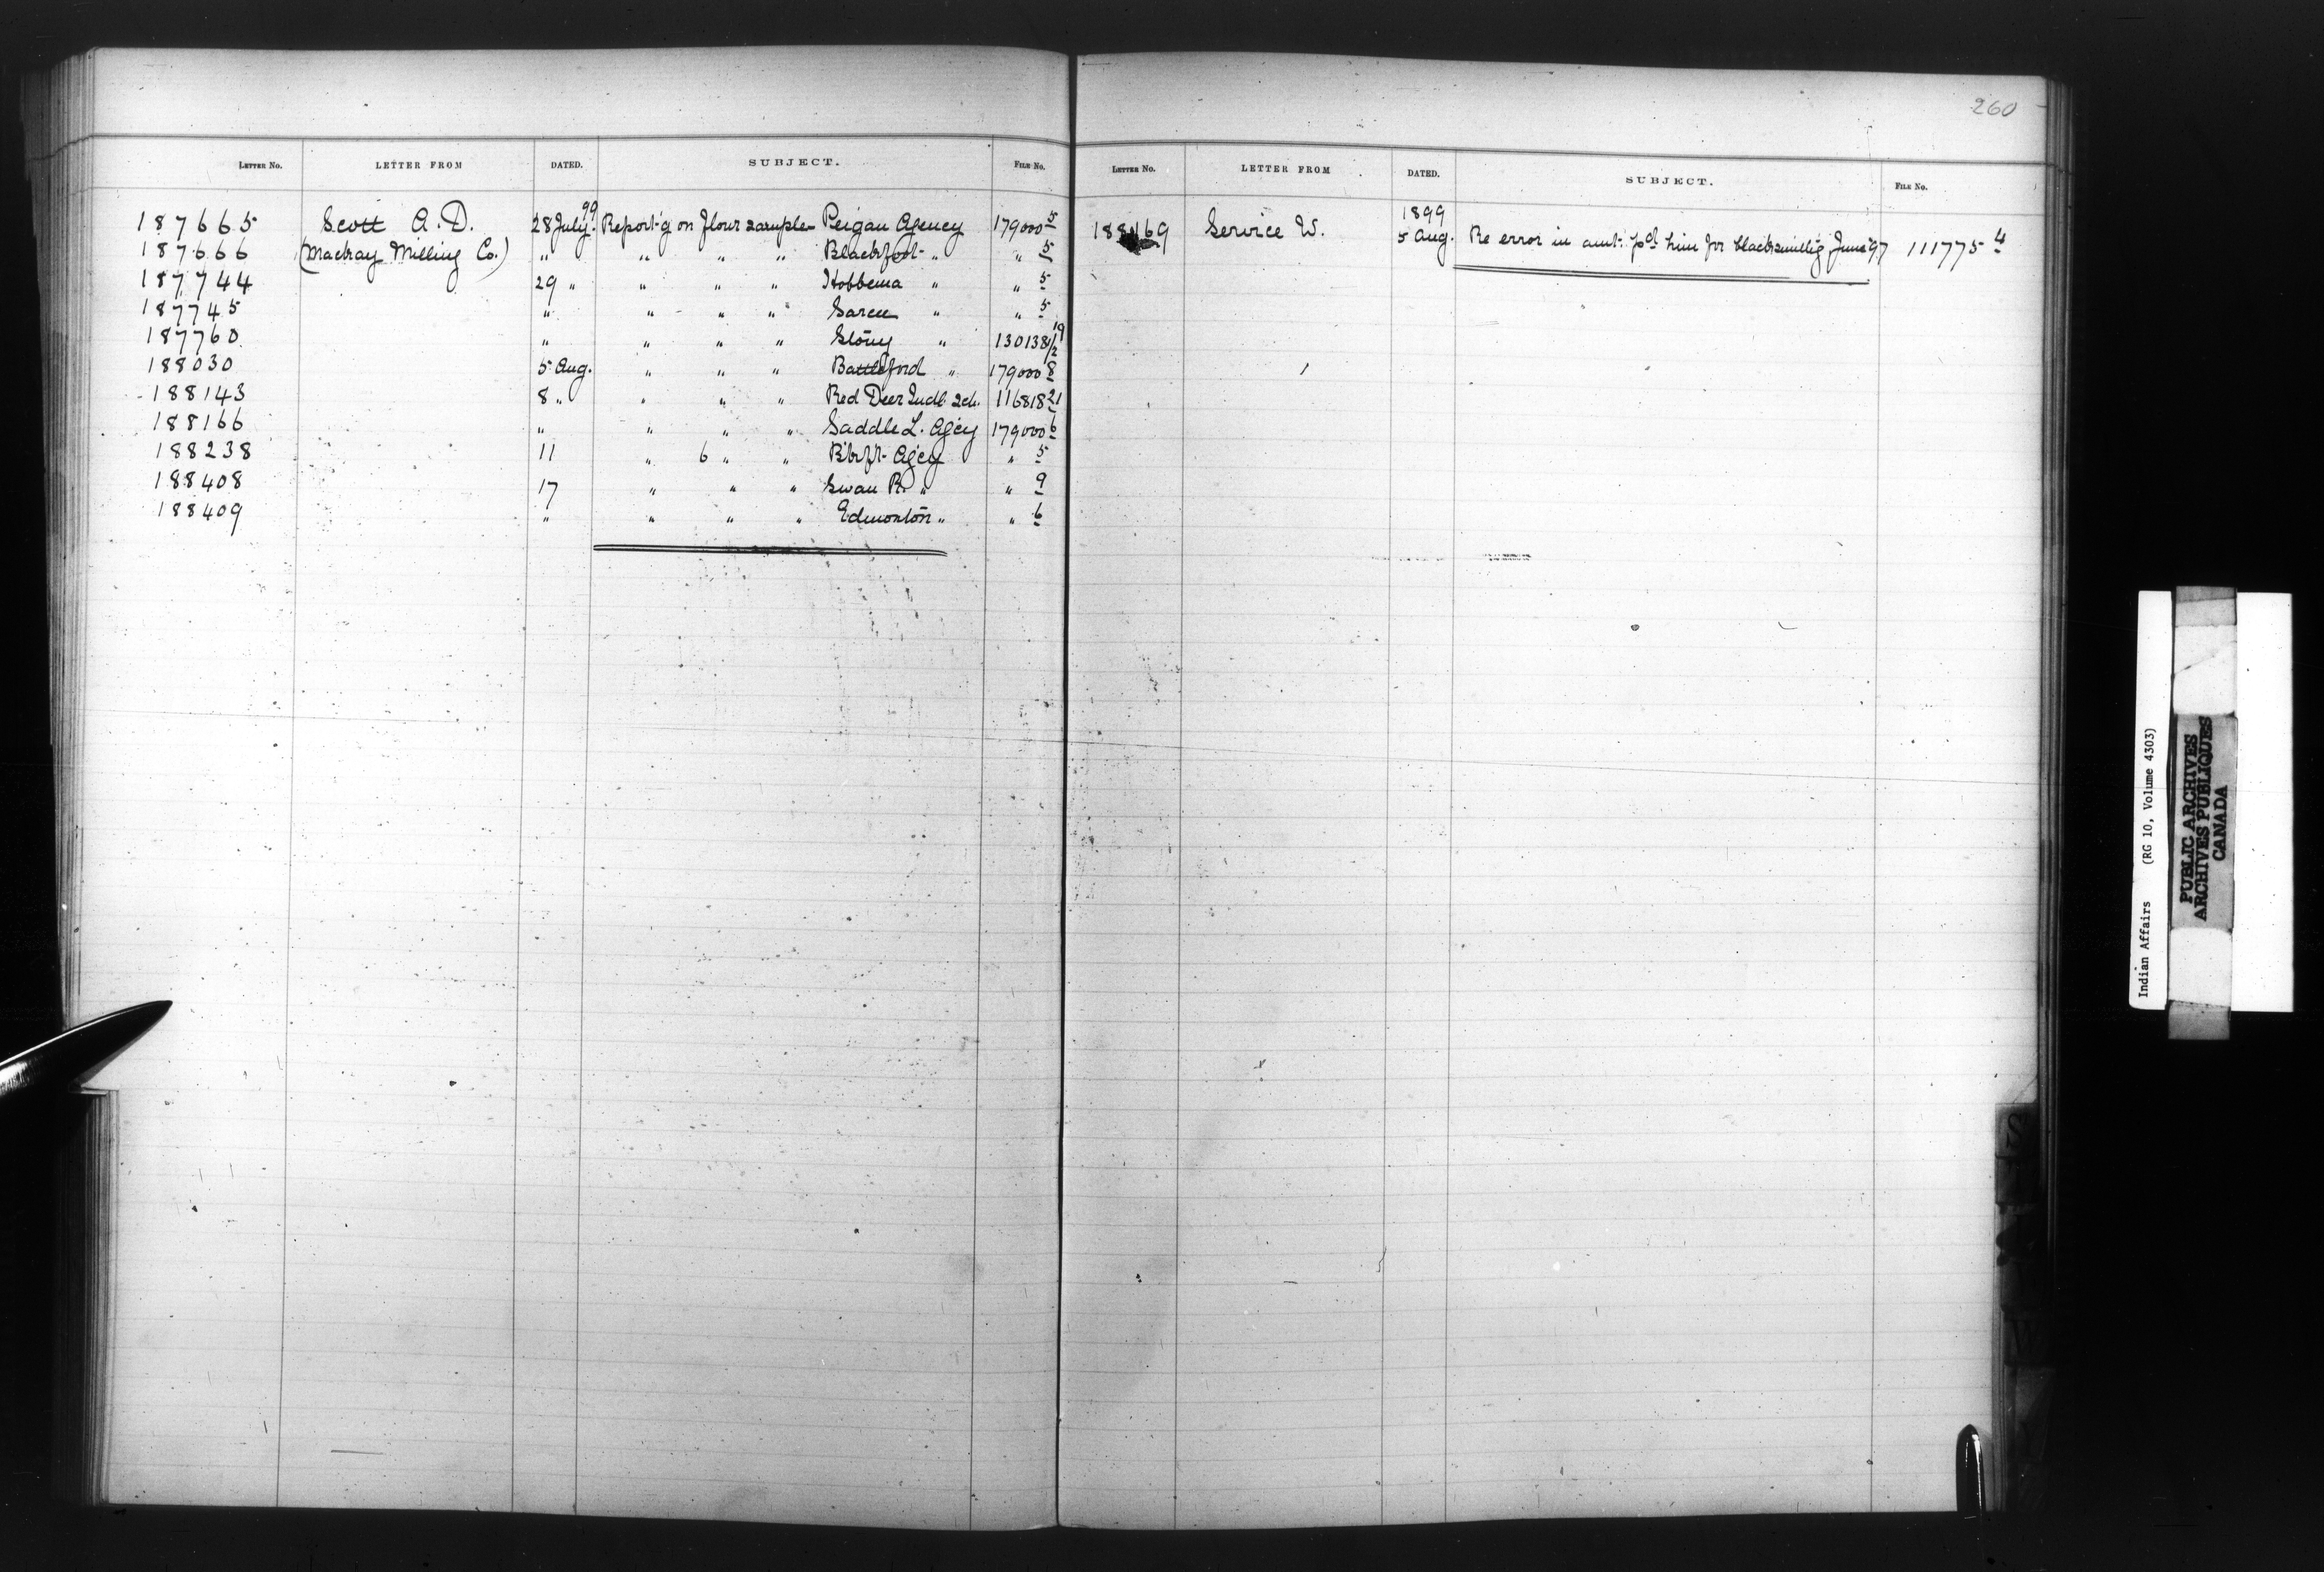 260
LETTER NO. LETTER FROM DATED. SUBJECT. FILE NO.
187665 Scott A. D. 28 July. 99 Report'g on flour samples Peigan Agency 179000 5
187666 (Mackay Milling Co.) " " " " Blackfoot " " 5
187744 29 " " " " Hobbema " " 5
187745 " " " " Sarcee " " 5
187760 " " " " Stony " 130138 1/2 19
188030 5 Aug. " " " Battleford " 179000 8
188143 8 " " " " Red Deer Indl. Sch. 116818 21
188166 " " " " Saddle L. Agcy 179000 6
188238 11 " 6 " " Bkft Agcy " 5
188408 17 " " " Swan R. " " 9
188409 " " " " Edmonton " " 6
LETTER NO. LETTER FROM DATED. SUBJECT. FILE NO.
1899
188169 Service W. 5 Aug. Re error in amt. pd him for blacksmith'g June 97 111775 4
S
W
Indian Affairs (RG 10, Volume 4303)
PUBLIC ARCHIVES
ARCHIVES PUBLIQUES
CANADA